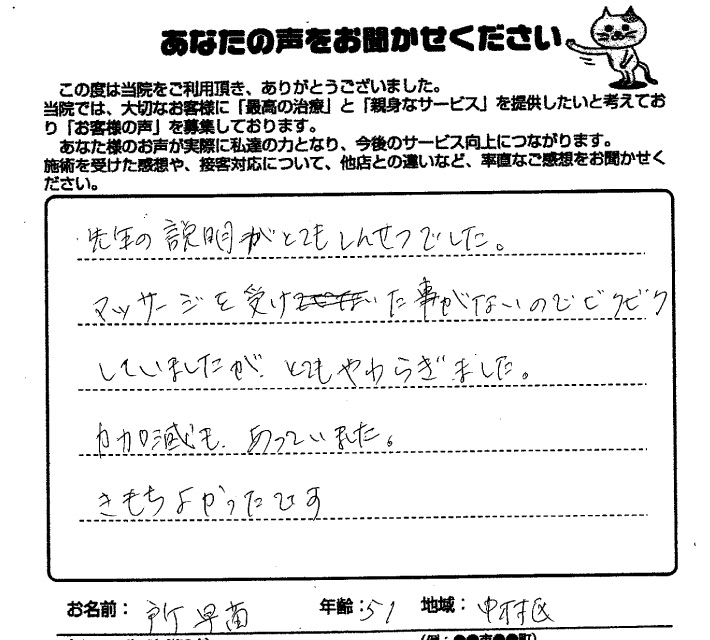 あなたの声をお聞かせください
この度は当院をご利用頂き、ありがとうございました。
当院では、大切なお客様に「最高の治療」と「親身なサービス」を提供したいと考えてお
り「お客様の声」を募集しております。
あなた様のお声が実際に私達の力となり、今後のサービス向上につながります。
施術を受けた感想や、接客対応について、他店との違いなど、率直なご感想をお聞かせく
ださい。
先生の説明がとてもしんせつでした。
マッサージを受けた事がないのでビクビク
していましたが、とてもやわらぎました。
力加減も、あっていました。
きもちよかったです
お名前： 所 早苗 年齢：51 地域： 中村区
(例：●●市●●町)